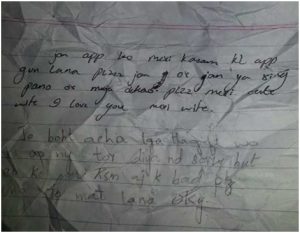 jan app ko meri kasam kl app
gun lana plzzz jan g or jan ya ring
pano or muja dekao plzz meri cute
wife I love you meri wife.
Ye boht acha lga tha g wo
ap ny tor diya nd sorry but
k Ksm aj k bad
mat lana Oky